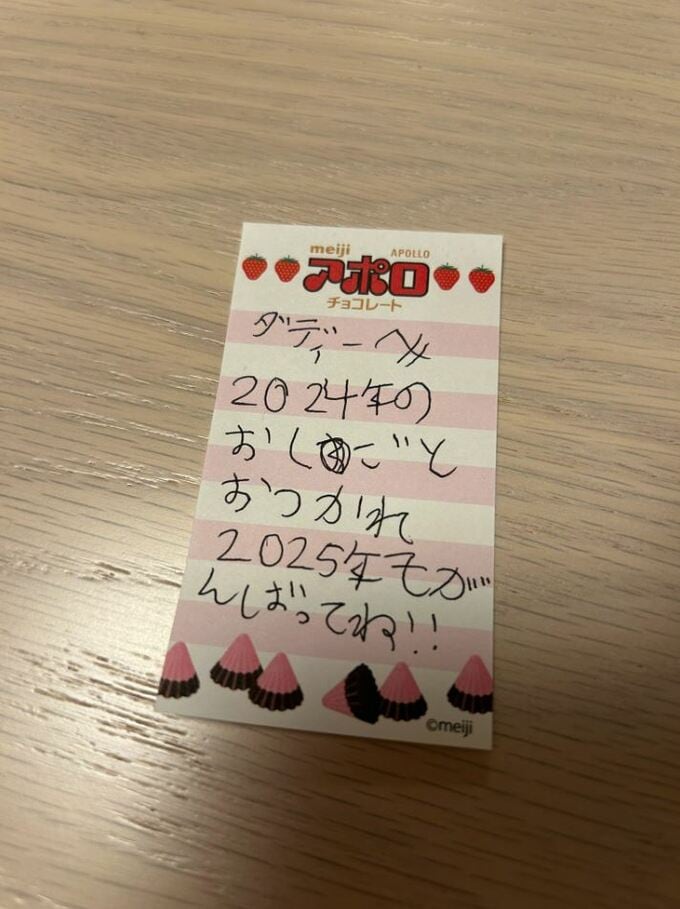 meiji
APOLLO
アポロ
チョコレート
ダディーへ
2024年の
おしごと
おつかれ
2025年もが
んばってね!!
©meiji